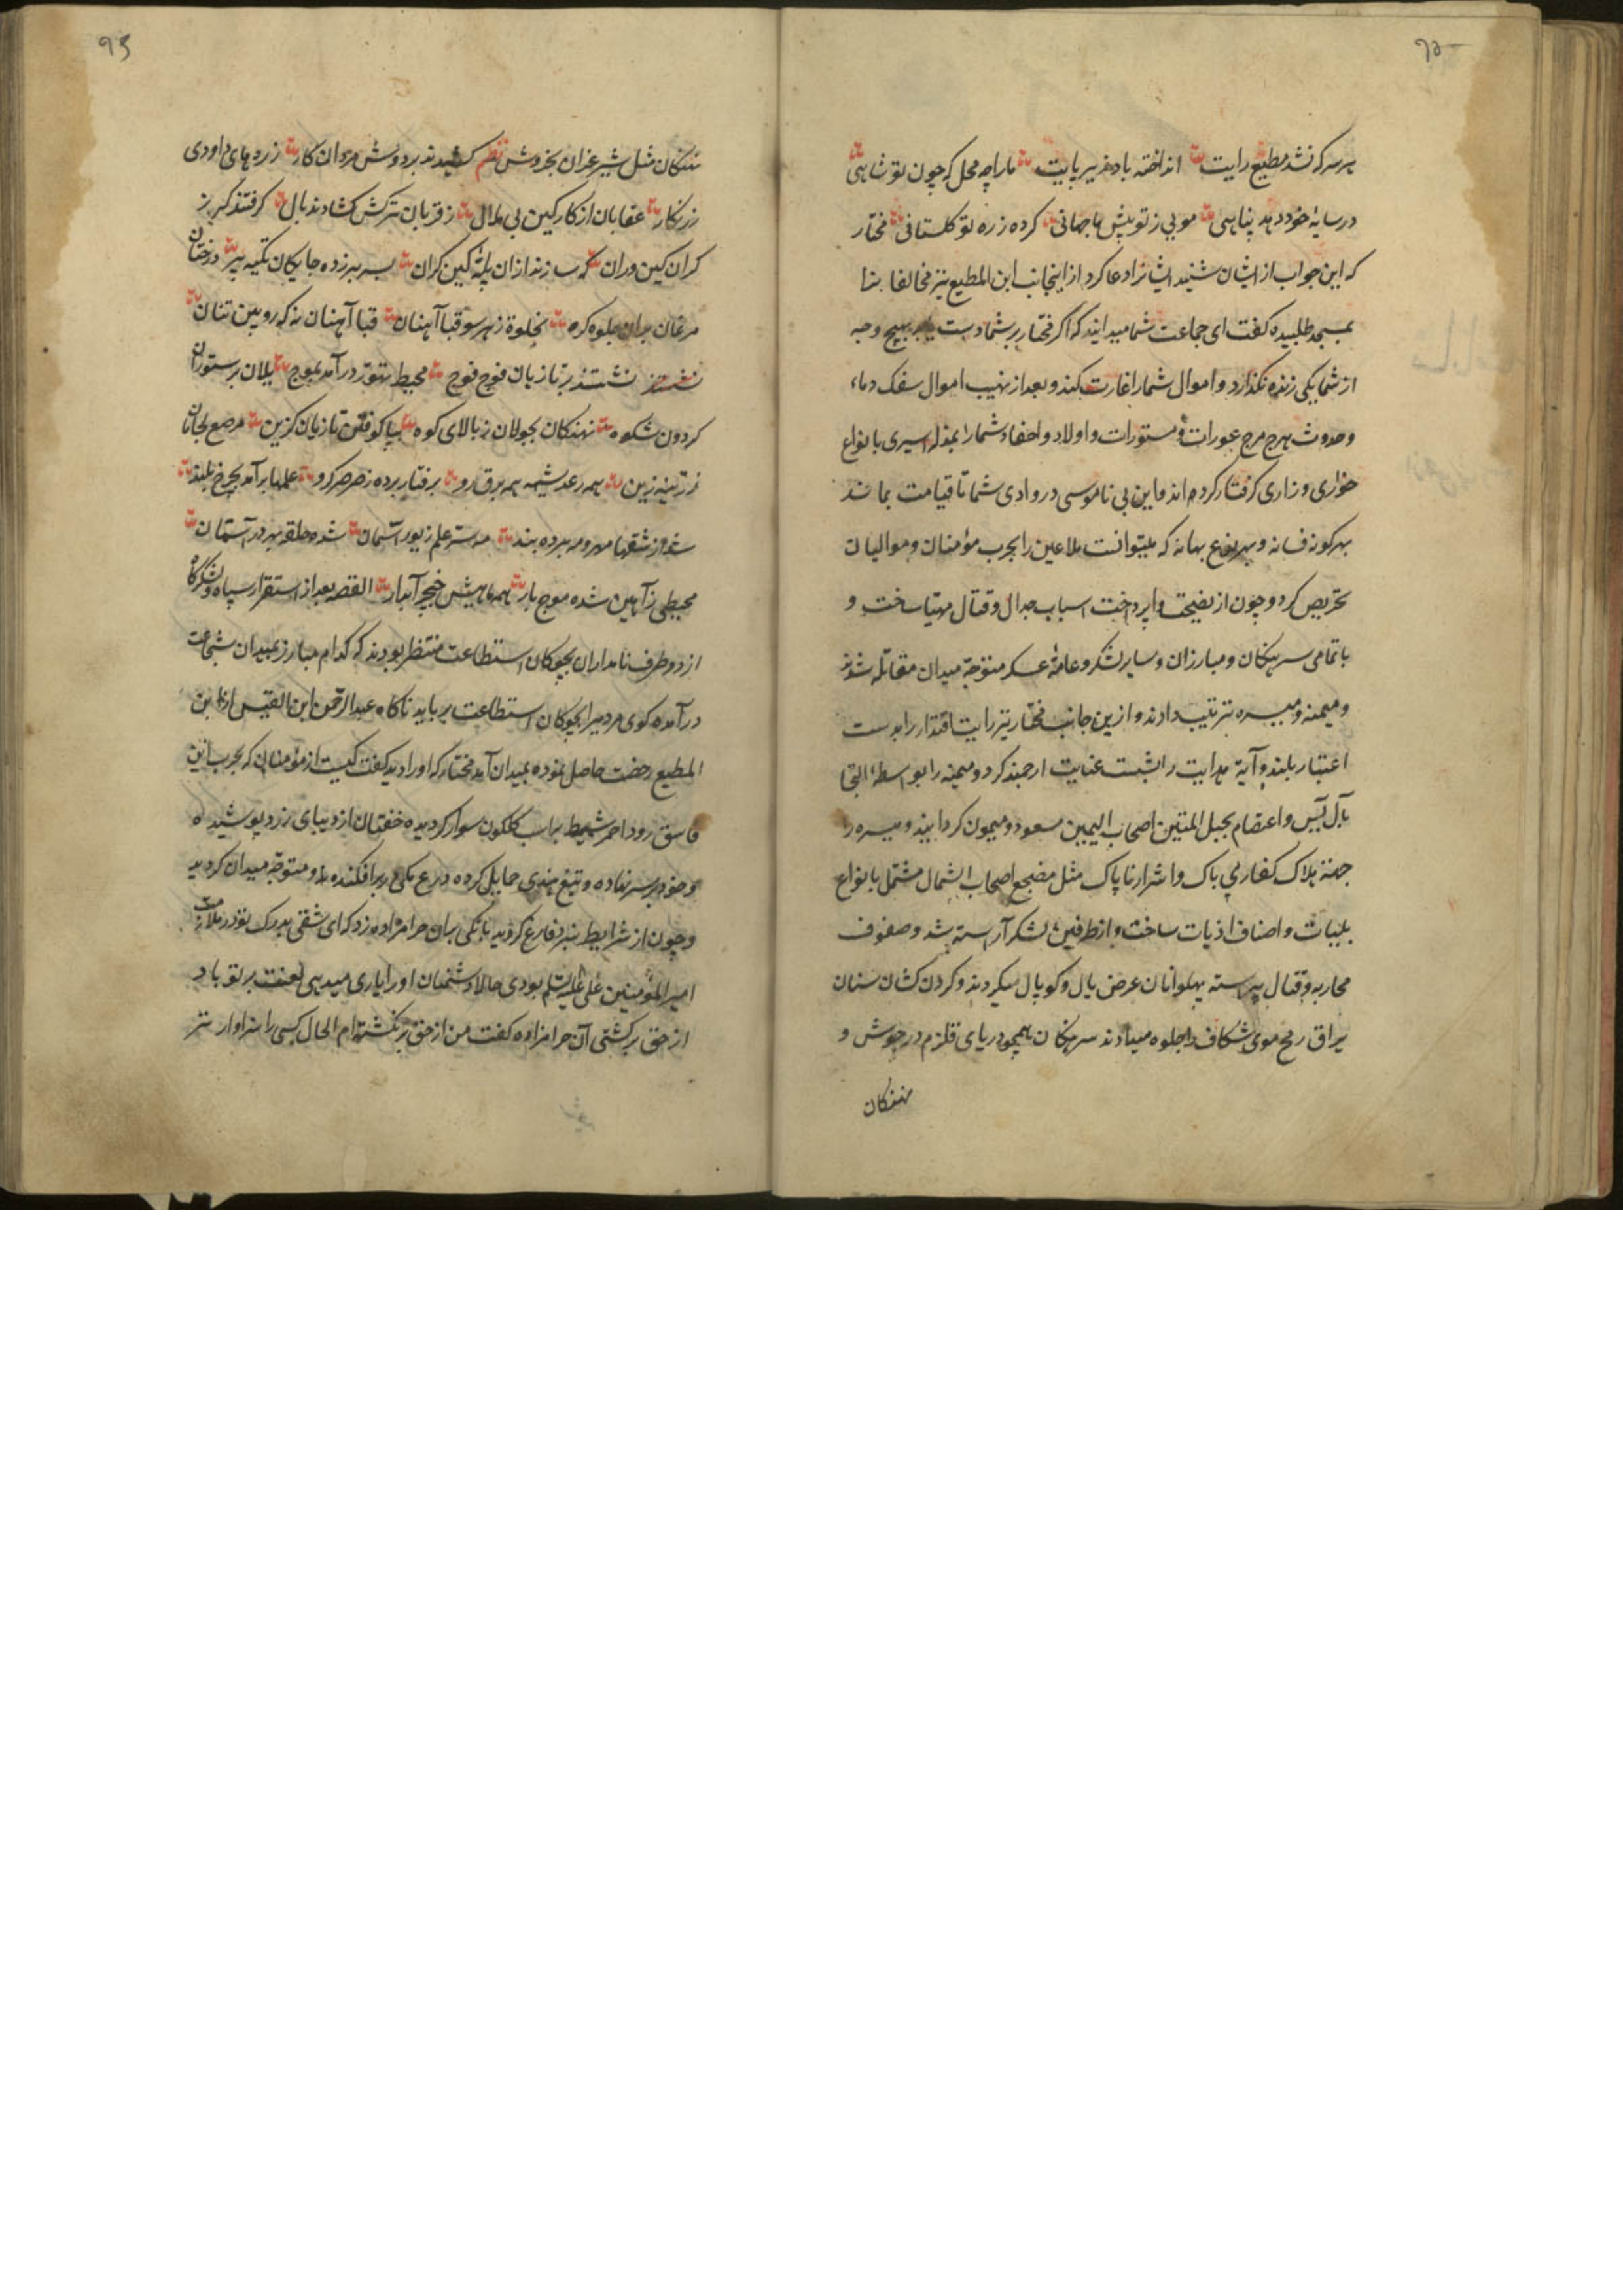 هر سر که نشد مطیع رایت انداخته باد زیر پایت ما را چه محل که چون تو شاهی
در سایهٔ خود دهد پناهی مویی ز تو پیش ما جهانی کرده ز ره تو کلستانی مختار
که این جواب از ایشان شنید ایشانرا دعا کرد از اینجانب ابن المطیع نیز مخالفانرا
بمسجد طلبیده کفت ای جماعت شما میدانید که اکر مختار بر شما دست یابد بهیچ وجه
از شما یکی زنده نکذارد و اموال شما را غارت کند و بعد از نهیب اموال سفک دماء
و حدوث هرج مرج عورات و مستورات و اولاد و احفاد شما را بمذلت اسیری بانواع
خواری و زاری کرفتار کرده اند و این بی ناموسی در وادی شما تا قیامت بماند
بهر کونه فسانه و بهر نوع بهانه که میتوانست ملاعین را بحرب مؤمنان و موالیان
تحریص کرد و چون از نصیحت واپرداخت اسباب جدال و قتال مهیا ساخت و
با تمامی سرهنکان و مبارزان و سایر لشکر و عامهٔ عسکر متوجه میدان مقاتله شدند
و میمنه و میسره ترتیب دادند و ازین جانب مختار نیز رایت اقتدار را بدست
اعتبار بلند و آیهٔ هدایت را بشست عنایت ارجمند کرد و میمنه را بواسطهٔ التجا
بآل یس و اعتصام بحبل المتین اصحاب الیمین مسعود و میمون کردانید و میسره را
جهة هلاک کفار بی باک و اشرار ناپاک مثل مضجع اصحاب الشمال مشتمل بانواع
بلیات و اصناف اذیات ساخت و از طرفین لشکر آراسته شد و صفوف
محاربه و قتال پیراسته پهلوانان عرض یال و کوپال میکردند و کردن کشان سنان
یراق رمح موی شکاف را جلوه میدادند سرهنکان همچو دریای قلزم در جوش و
نهنکان
نهنکان مثل شیر غران بخروش نظم کشیدند بر دوش مردان کار زره های داودی
زرنکار عقابان از کار کین بی ملال ز قربان ترکش کشادند بال کرفتند کرز
کران کین وران که سازند ازان پلهٔ کین کران سپر بر زده جا یکان تکیه بر درختان
مرغان بران جلوه کره بجلوه ز هر سو قبا آهنان قبا آهنان نه که رویین تنان
نشستند بر تازیان فوج فوج محیط تهور درآمد بموج یلان بر ستوران
کردون شکوه نهنکان بجولان ز بالای کوه بپا کوفتن تازیان کزین مرصع لجامان
زرینه زین همه رعد شیهه همه برق رو برفتار برده ز صرصر کرو علمها برآمد بچرخ بلند
شد از شقها مهر و مه پرده بند مه سر علم زیور آسمان شده حلقه بر در آستان
محیطی ز آهن شده موج بار همه ماهیش خنجر آبدار القصه بعد از استقرار سپاه و لشکرگاه
از دو طرف نامداران بچوکان استطاعت منتظر بودند که کدام مبارز بمیدان شجاعت
درآمده کوی مردی را بچوکان استطاعت برباید ناکاه عبدالرحمن ابن القیس از ابن
المطیع رخصت حاصل نموده بمیدان آمد مختار که او را دید کفت کیست از مؤمنان که بحرب این
فاسق رود احمر شمیط بر اسب کلکون سوار کردیده خفتان از دیبای زرد پوشیده
و خود بر سر نهاده و تیغ هندی حمایل کرده درع مکی در بر افکنده و متوجه میدان کردید
و چون از شرایط نبرد فارغ کردید بانکی بران حرامزاده زد که ای شقی پدرک تو در ملازمت
امیرالمؤمنین علی علیه السلام بودی حالا دشمنان او را یاری میدهی لعنت بر تو باد
از حق برکشتی آن حرامزاده کفت من از حق برنکشته ام الحال کسی را سزاوارتر